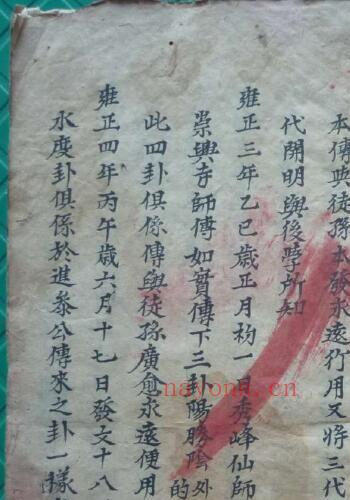 本傳與徒孫本發永遠行用又將三代
代開明與後學所知
雍正三年乙巳歲正月初一日秀峰仙師
崇興寺師傳如實傳下三卦陽勝陰外的
此四卦俱係傳與徒孫廣愈永遠便用
雍正四年丙午歲六月十七日發文十八
水度卦俱係於進參公傳來之卦一樣
nayona.cn